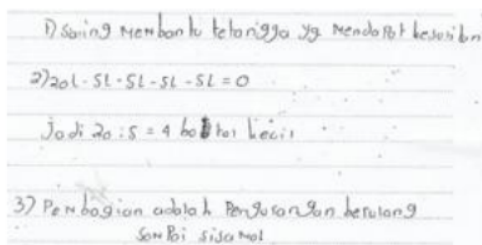 1) Saling Membantu tetangga yg Mendapat kesusahan
2) 20l - 5l - 5l - 5l - 5l = 0
Jadi 20 : 5 = 4 botol kecil
3) Pembagian adalah Pengurangan berulang
Sampai sisa nol